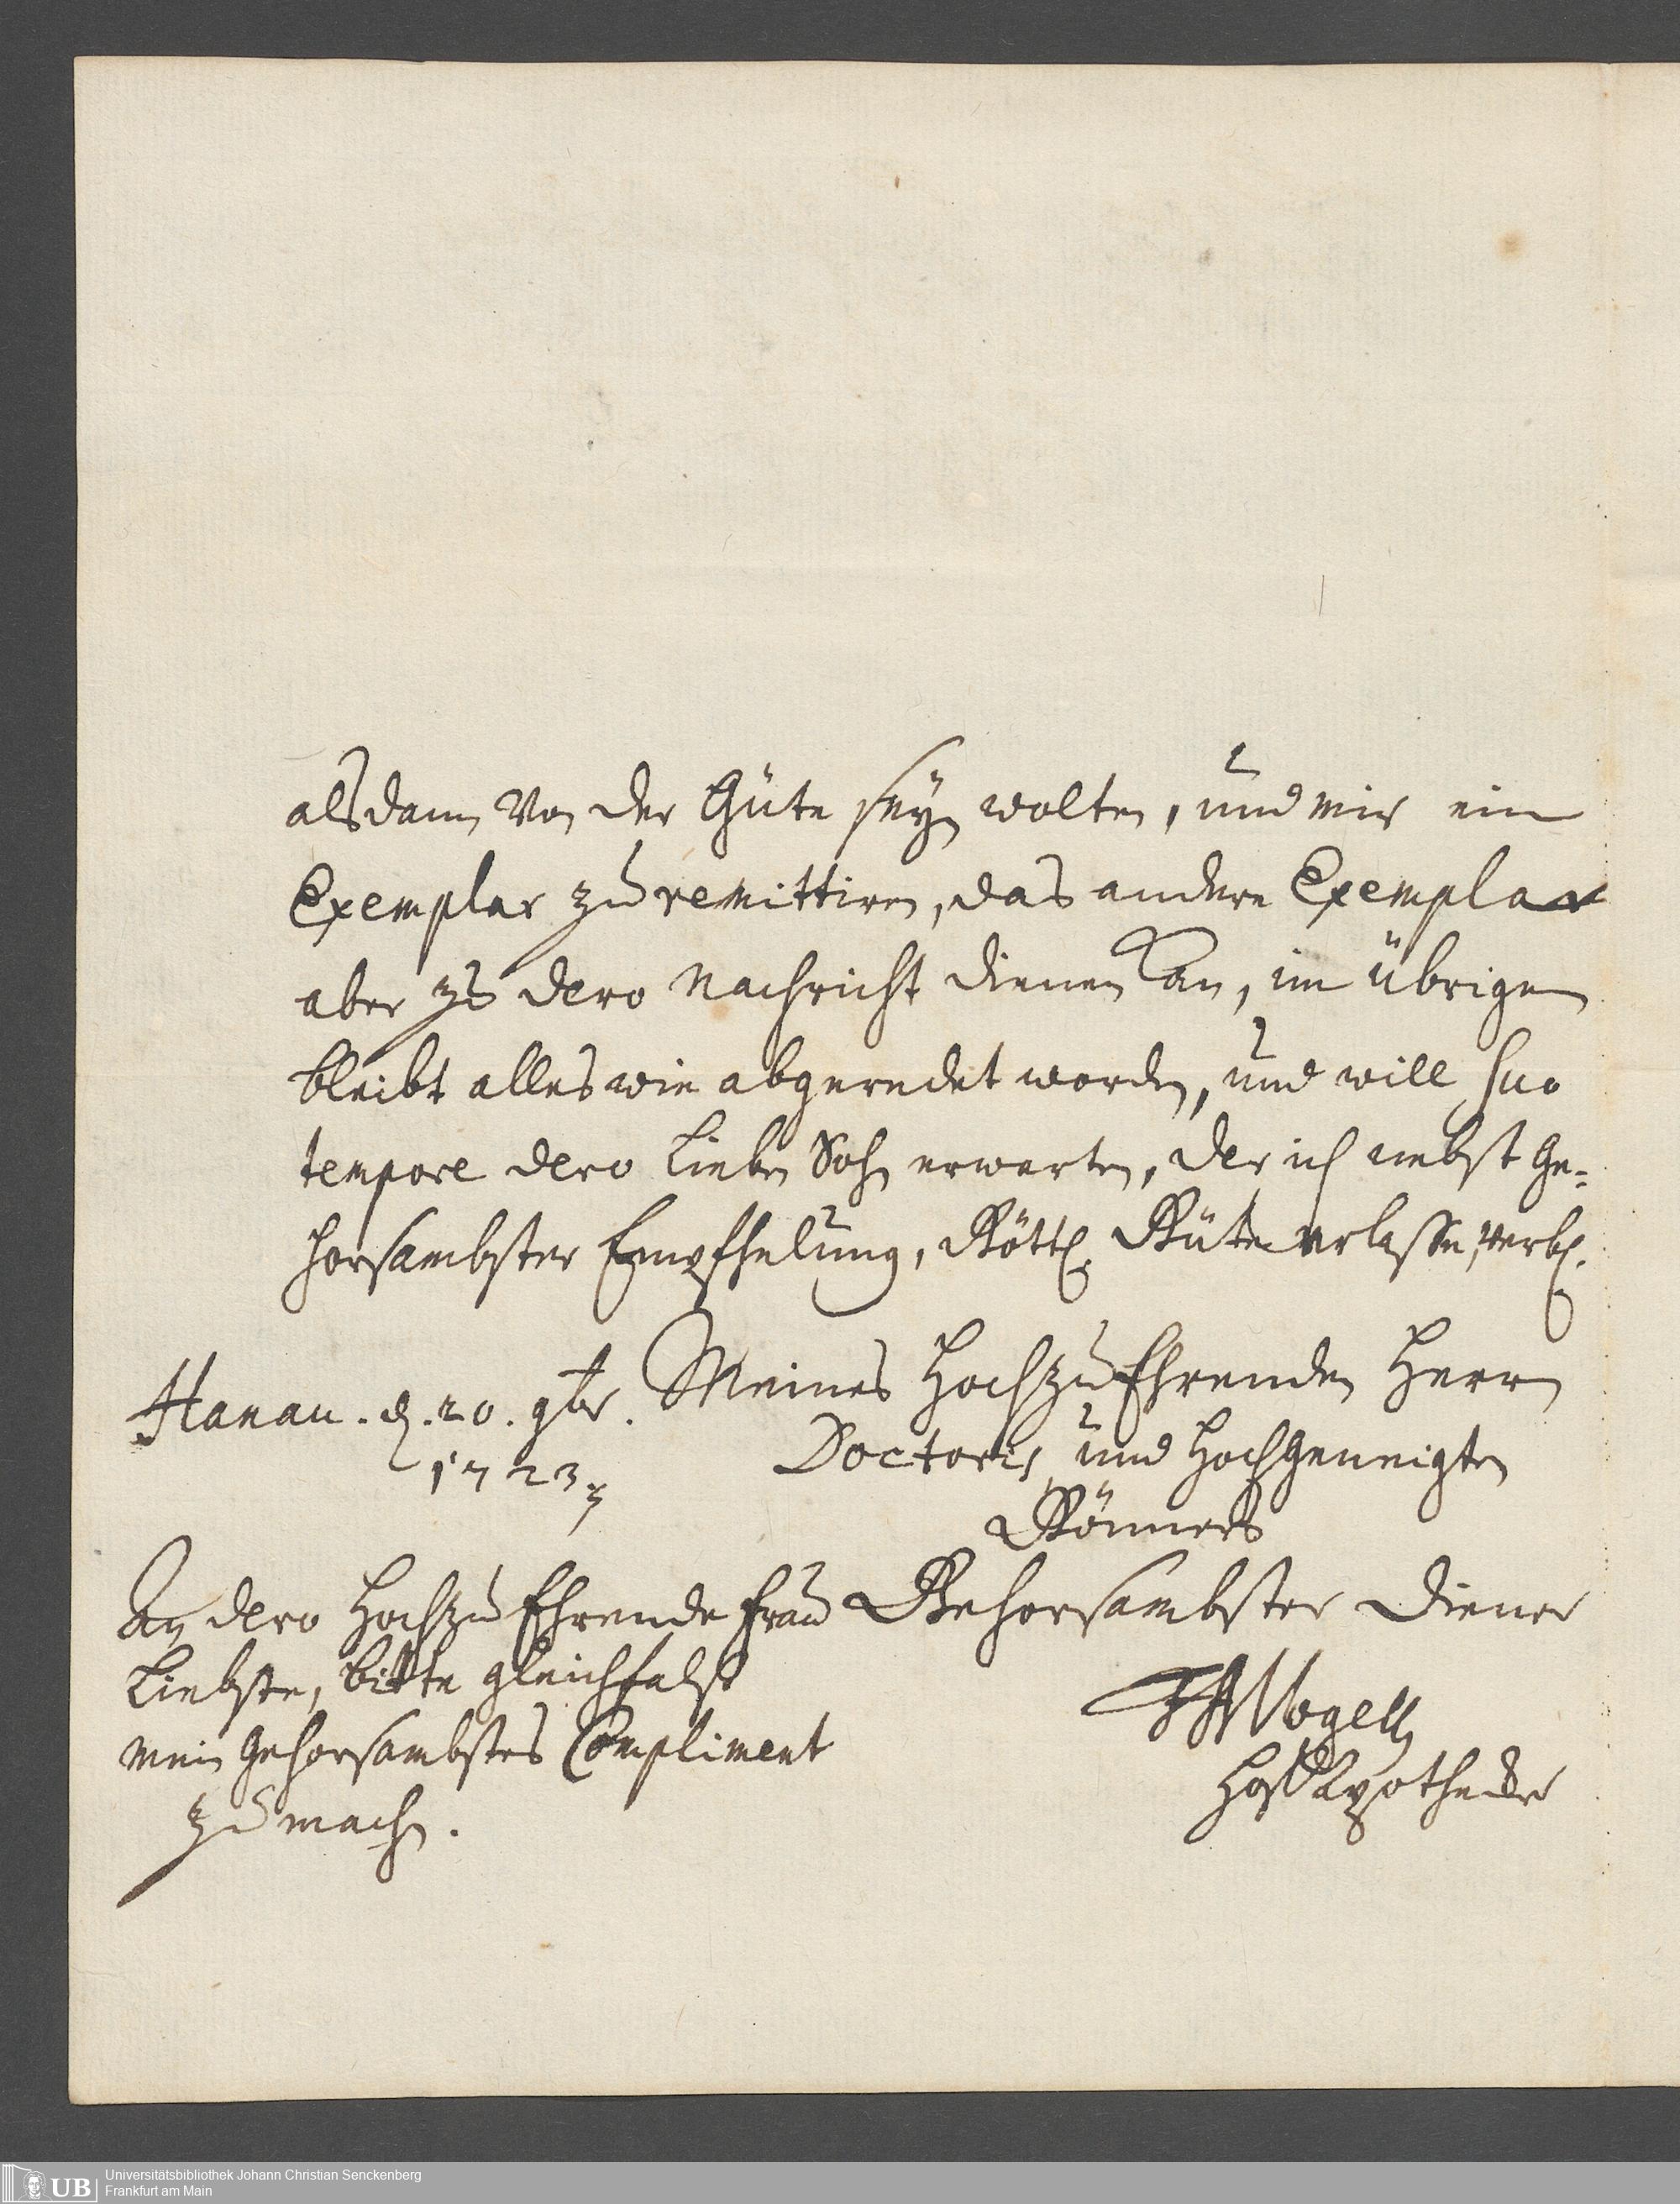 alsdann von der Güte seyn wolten, und mir ein
Exemplar zu remittiren, das andere Exemplar
aber zu dero Nachricht dienen kan, im übrigen
bleibt alles wie abgeredet worden, und will suo
tempore dero Lieben Sohn erwarten, der ich nebst Ge-
horsambster Empfhelung, Göttl. Güte erlasse, verbl.
Hanau. d. 20. 9br.
1723
Meines HochzuEhrenden Herrn
Doctoris und Hochgeneigten
Gönners
Gehorsambster Diener
Vogell
HofApothecker
An dero Hochzu Ehrende Frau
Liebste, bitte gleichfalst
mein gehorsambstes Compliment
zu machen.
UB Universitätsbibliothek Johann Christian Senckenberg
Frankfurt am Main